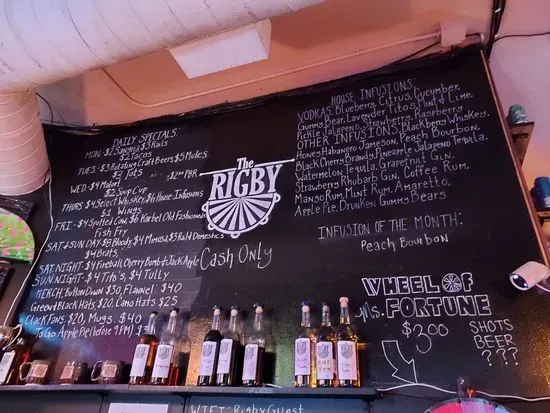 DAILY SPECIALS
MON - $2 Sangria $3 Rails
$2 Tacos
TUES - $3 Rotating Craft Beers $5 Mules
$2 Tots or $2 PBR
WED - $4 Malort
$2 Soup Cup
THURS - $4 Select Whiskey, $6 House Infusions
$1 Wings
FRI - $4 Spotted Cow, $6 Korbel Old Fashioned
Fish Fry
SAT + SUN DAY - $6 Bloody, $4 Mimosa, $3 Half Domestics
$4 Brats
SAT. NIGHT - $4 Fireball, Cherry Bomb + Jack Apple
SUN. NIGHT - $4 Tito's, $4 Tully
MERCH, Button Down $30, Flannel: $40
Green + Black Hats $20, Camo Hats $25
Black Fans, $20, Mugs, $40
To Go Apple Pie (before 9PM) $3
The
RIGBY
Cash Only
HOUSE INFUSIONS:
VODKA: Blueberry, Citrus, Cucumber,
Gummy Bear, Lavender Titos, Mint & Lime,
Pickle, Jalapeno, Strawberry, Raspberry
OTHER INFUSIONS: Blackberry Whiskey,
Honey Habanero Jameson, Peach Bourbon,
Black Cherry Brandy, Pineapple Jalapeno Tequila,
Watermelon Tequila, Grapefruit Gin,
Strawberry Rhubarb Gin, Coffee Rum,
Mango Rum, Mint Rum, Amaretto,
Apple Pie, Drunken Gummy Bears
INFUSION OF THE MONTH:
Peach Bourbon
WHEEL OF
Ms. FORTUNE
$3.00
SHOTS
BEER
???
WIFI: RigbyGuest